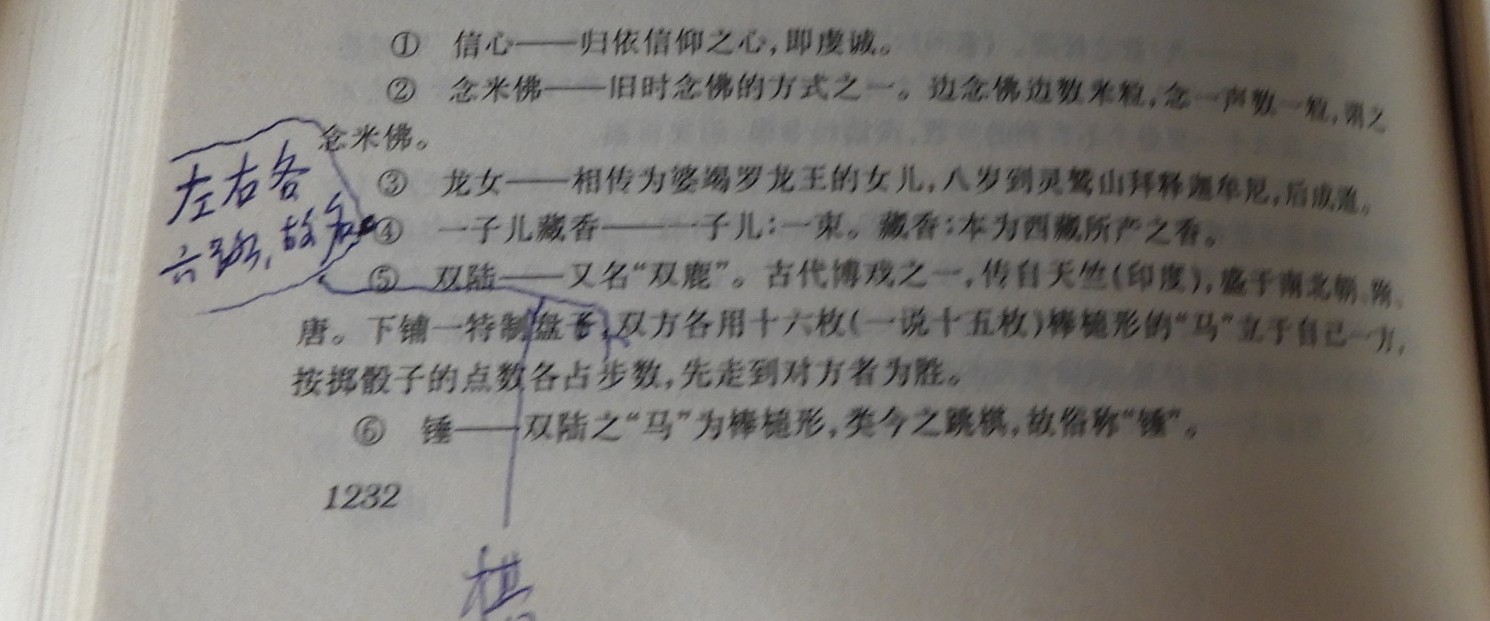 ① 信心——归依信仰之心，即虔诚。
② 念米佛——旧时念佛的方式之一。边念佛边数米粒，念一声数一粒，谓之
念米佛。
③ 龙女——相传为婆竭罗龙王的女儿，八岁到灵鹫山拜释迦牟尼，后成道。
④ 一子儿藏香——一子儿：一束。藏香：本为西藏所产之香。
⑤ 双陆——又名“双鹿”。古代博戏之一，传自天竺（印度），盛于南北朝、隋、
唐。下铺一特制盘子，双方各用十六枚（一说十五枚）棒槌形的“马”立于自己一方，
按掷骰子的点数各占步数，先走到对方者为胜。
⑥ 锤——双陆之“马”为棒槌形，类今之跳棋，故俗称“锤”。
1232
左右各
六路，故名
棋